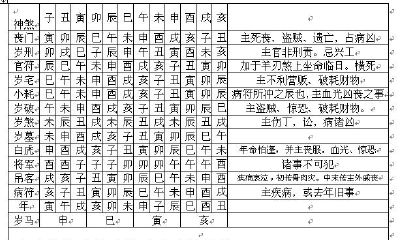 神煞 子 丑 寅 卯 辰 巳 午 未 申 酉 戌 亥
丧门 寅 卯 辰 巳 午 未 申 酉 戌 亥 子 丑 主死丧、盗贼、遗亡、占病凶
岁刑 卯 戌 巳 子 辰 申 午 丑 寅 酉 未 亥 主官非刑责。忌兴工
官符 辰 巳 午 未 申 酉 戌 亥 子 丑 寅 卯 加于羊刃煞上坐命临日。横死
岁宅 巳 午 未 申 酉 戌 亥 子 丑 寅 卯 辰 主不利营贩、破耗财物
小耗 巳 午 未 申 酉 戌 亥 子 丑 寅 卯 辰 病符所冲之辰也,主血光凶丧之事
岁破 午 未 申 酉 戌 亥 子 丑 寅 卯 辰 巳 主盗贼、惊恐、破耗财物。
岁煞 未 辰 丑 戌 未 辰 丑 戌 未 辰 丑 戌 主伤丁,讼,病诸凶
岁墓 未 申 酉 戌 亥 子 丑 寅 卯 辰 巳 午
白虎 申 酉 戌 亥 子 丑 寅 卯 辰 巳 午 未 年命怕逢,并主丧服,血光、惊恐
将军 酉 酉 子 子 子 卯 卯 卯 午 午 午 酉 诸事不可犯
吊客 戌 亥 子 丑 寅 卯 辰 巳 午 未 申 酉 疾病哀泣,初传骨肉灾。中末传主外感丧
病符 亥 子 丑 寅 卯 辰 巳 午 未 申 酉 戌 主疾病,或去年旧事
年
岁马 申 巳 寅 亥